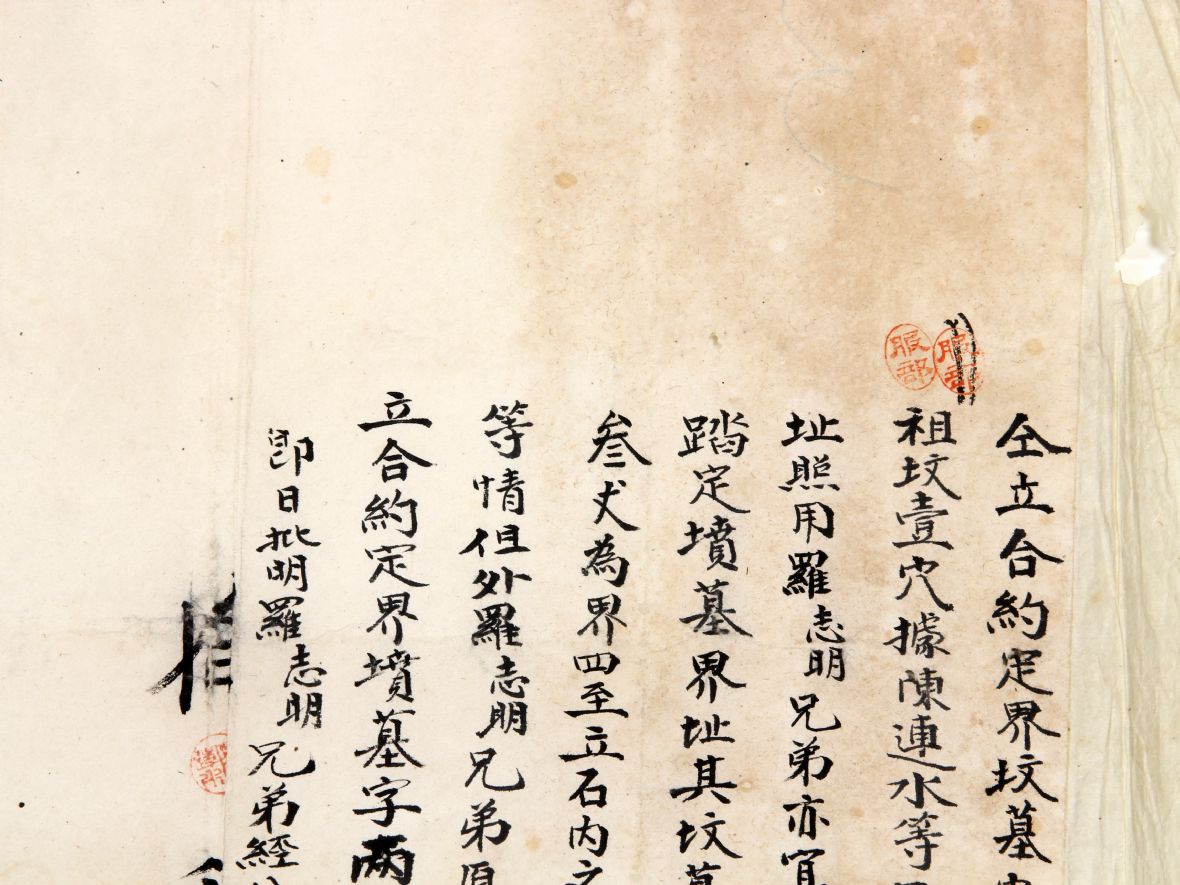 仝立合約定界坟墓
祖坟壹穴據陳連水等
址照用羅志明兄弟亦宜
踏定墳墓界址其坟墓
叁丈為界四至立石内之
等情但外羅志明兄弟原
立合約定界墳墓字兩
即日批明羅志明兄弟經
服部
服部